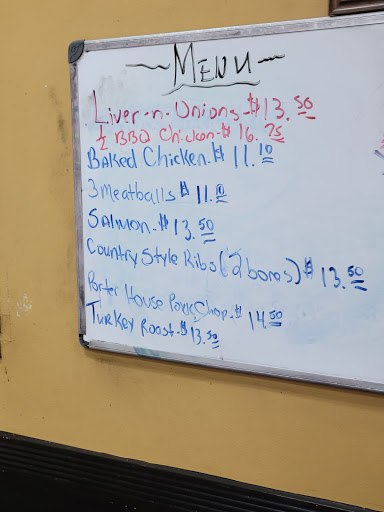 ~MENU~
Liver-n-Unions-$13.50
½ BBQ Chicken-$16.75
BAKed Chicken-$11.10
3 Meatballs $11.10
SAlmon-$13.50
Country Style Ribs (2 bones) $13.50
Porter House Pork Chop-$14.50
TurKey Roast-$13.50